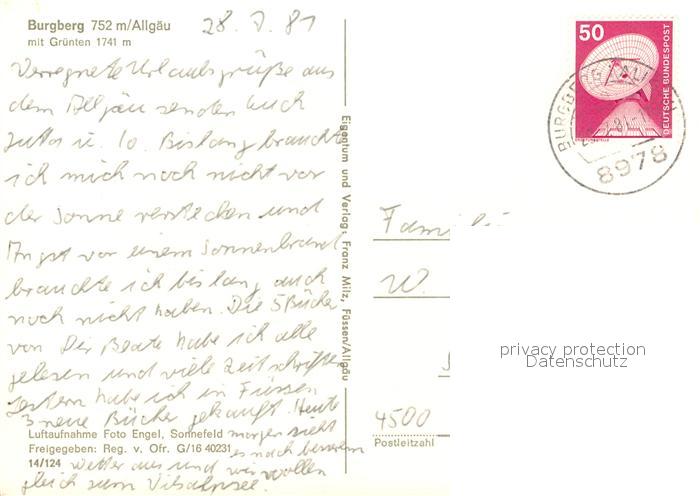 Burgberg 752 m/Allgäu
mit Grünten 1741 m
28. 7. 81
Verregnete Urlaubsgrüße aus
dem Allgäu senden Euch
Jutta u. Jo. Bislang brauchte
ich mich noch nicht vor
der Sonne verstecken und
Angst vor einem Sonnenbrand
brauchte ich bislang auch
noch nicht haben. Die 5 Bücher
von Dir Beate habe ich alle
gelesen und viele Zeitschriften
Gestern habe ich in Füssen
3 neue Bücher gekauft. Heute
morgen sieht
es nach besserem
Wetter aus und wir wollen
gleich zum Vilsalpsee.
Luftaufnahme Foto Engel, Sonnefeld
Freigegeben: Reg. v. Ofr. G/16 40231
14/124
Eigentum und Verlag: Franz Milz, Füssen/Allgäu
50
DEUTSCHE BUNDESPOST
BURGBERG
8978
Fami
W.
4500
Postleitzahl
privacy protection
Datenschutz